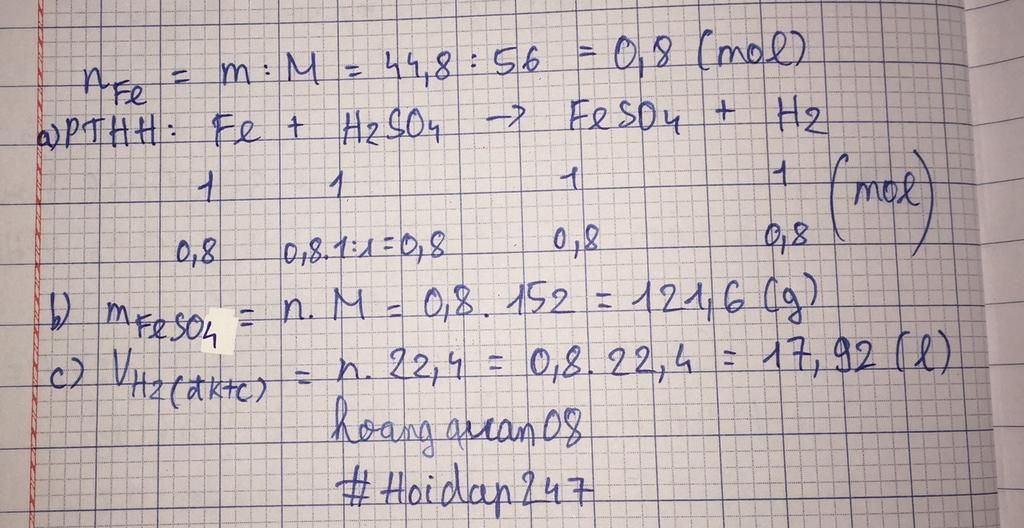 nFe = m : M = 44,8 : 56 = 0,8 (mol)
a) PTHH: Fe + H2SO4 -> FeSO4 + H2
1 1 1 1 (mol)
0,8 0,8.1:1=0,8 0,8 0,8
b) mFeSO4 = n. M = 0,8 . 152 = 121,6 (g)
c) VH2(đktc) = n. 22,4 = 0,8. 22,4 = 17,92 (l)
hoangquan08
#Hoidap247